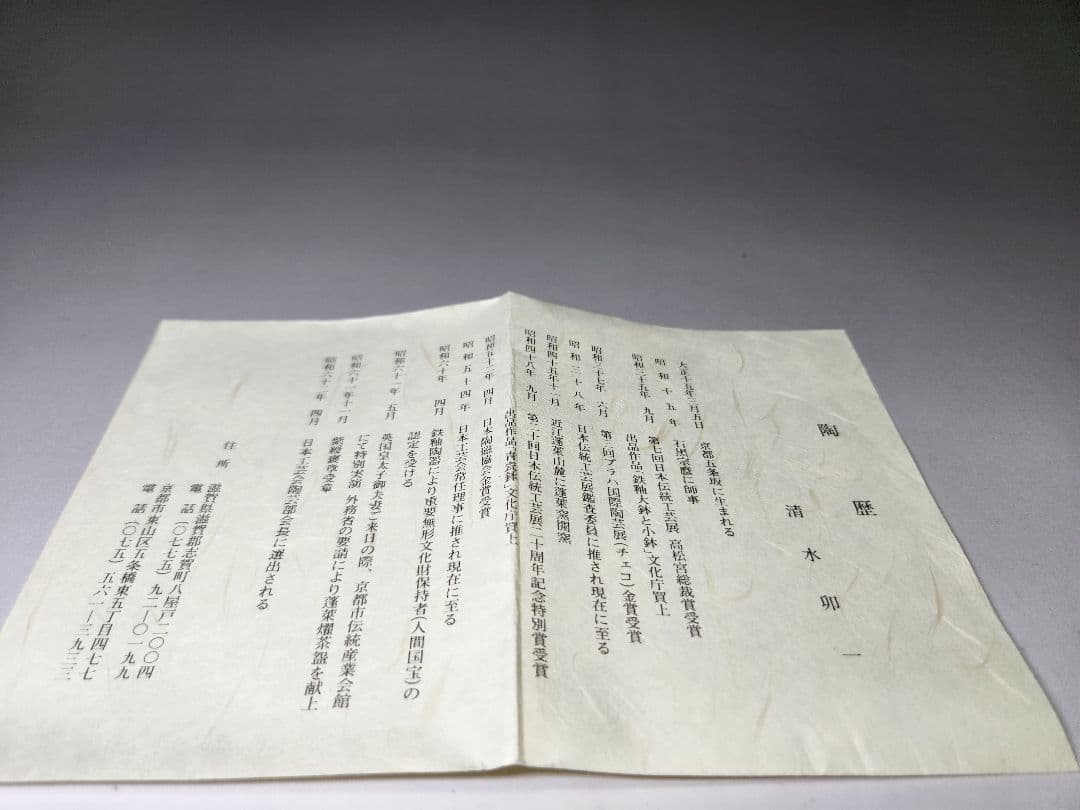 陶歴
清水卯一
大正十五年三月五日 京都五条坂に生まれる
昭和十五年 石黒宗麿に師事
昭和三十五年九月 第七回日本伝統工芸展 高松宮総裁賞受賞
出品作品「鉄釉大鉢と小鉢」文化庁買上
昭和三十七年六月 第三回プラハ国際陶芸展(チェコ)金賞受賞
昭和三十八年 日本伝統工芸展鑑査委員に推され現在に至る
昭和四十五年十一月 近江蓬莱山麓に蓬莱窯開窯
昭和四十八年九月 第二十回日本伝統工芸展二十周年記念特別賞受賞
出品作品「青瓷鉢」文化庁買上
昭和五十三年四月 日本陶磁協会金賞受賞
昭和五十四年 日本工芸会常任理事に推され現在に至る
昭和六十年四月 鉄釉陶器により重要無形文化財保持者(人間国宝)の
認定を受ける
昭和六十一年五月 英国皇太子御夫妻ご来日の際、京都市伝統産業会館
にて特別実演 外務者の要請により蓬莱燿茶盌を献上
昭和六十一年十一月 紫綬褒章受章
昭和六十二年四月 日本工芸会陶芸部会長に選出される
住所 滋賀県滋賀郡志賀町八屋戸二〇〇四
電話(〇七七五)九二―〇一九九
京都市東山区五条橋東五丁目四七七
電話(〇七五)五六一―三九三三